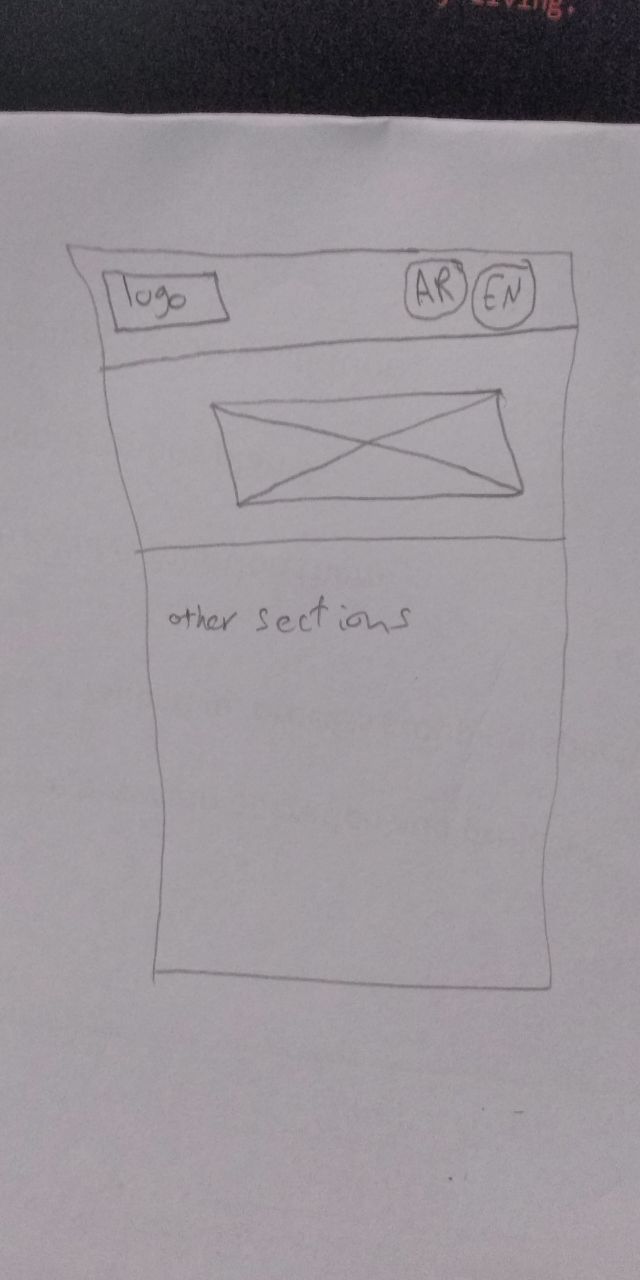 living.
logo AR EN
other sections